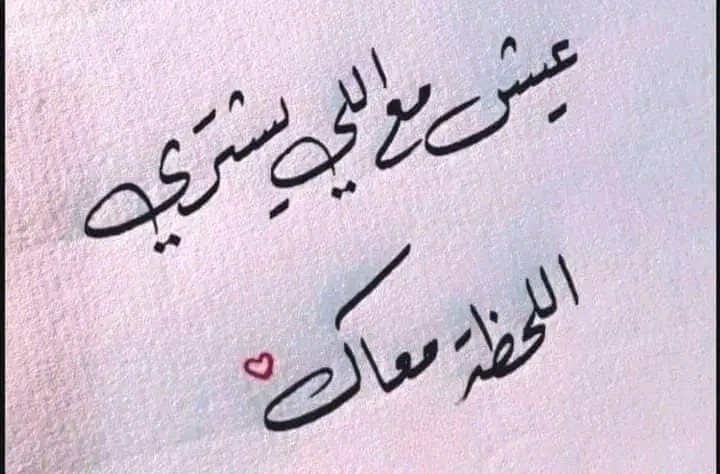 عيش مع اللي يشتري
اللحظة معاك